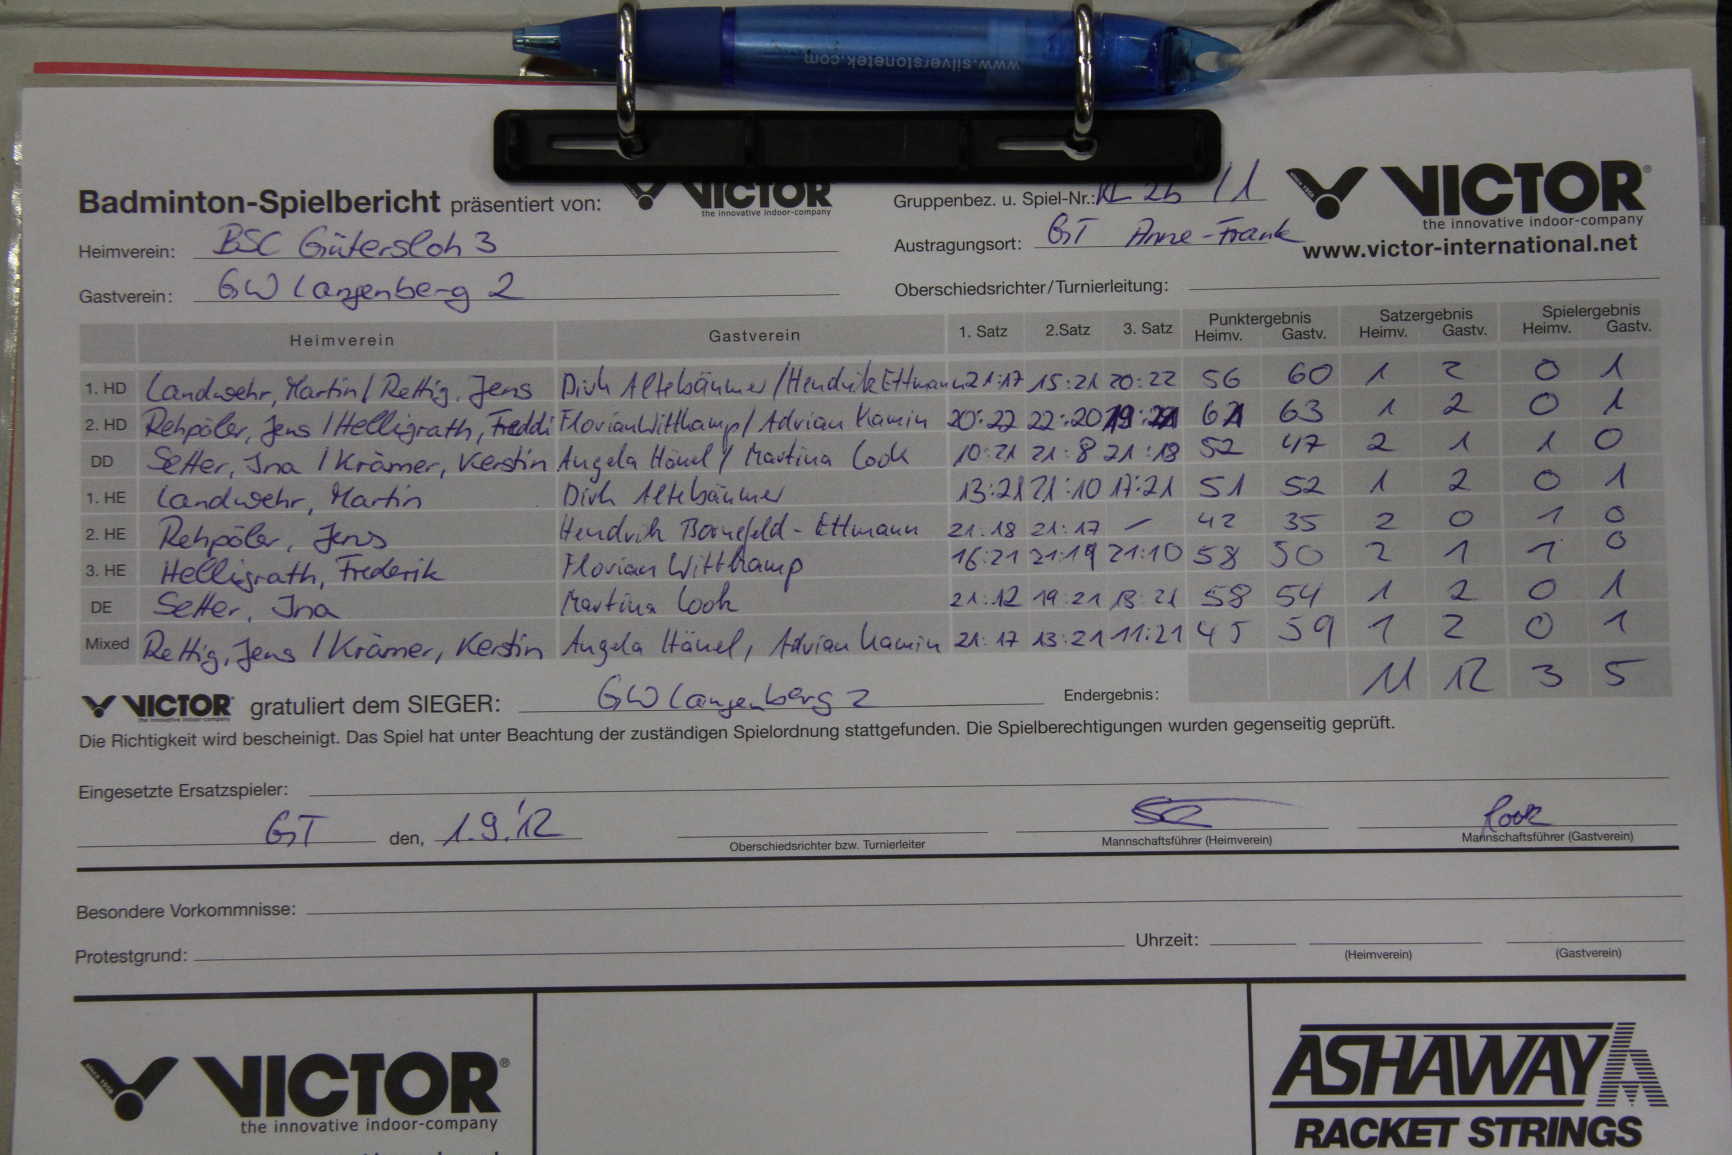 www.silverstonetek.com
Badminton-Spielbericht präsentiert von: VICTOR the innovative indoor-company
Gruppenbez. u. Spiel-Nr.: KL 2b / 1
VICTOR® since 1968
the innovative indoor-company
www.victor-international.net
Heimverein: BSC Gütersloh 3
Austragungsort: GT Anne-Frank
Gastverein: GW Langenberg 2
Oberschiedsrichter/Turnierleitung:
Heimverein Gastverein 1. Satz 2.Satz 3. Satz Punktergebnis Heimv. Gastv. Satzergebnis Heimv. Gastv. Spielergebnis Heimv. Gastv.
1. HD Landwehr, Martin / Rettig, Jens Dirk Altebäumer / Hendrik Ettmann 21:17 15:21 20:22 56 60 1 2 0 1
2. HD Rehpöler, Jens / Helligrath, Freddi Florian Wittkamp / Adrian Kamin 20:22 22:20 19:21 61 63 1 2 0 1
DD Setter, Ina / Krämer, Kerstin Angela Hänel / Martina Cook 10:21 21:8 21:18 52 47 2 1 1 0
1. HE Landwehr, Martin Dirk Altebäumer 13:21 21:10 17:21 51 52 1 2 0 1
2. HE Rehpöler, Jens Hendrik Bornefeld-Ettmann 21:18 21:17 – 42 35 2 0 1 0
3. HE Helligrath, Frederik Florian Wittkamp 16:21 21:19 21:10 58 50 2 1 1 0
DE Setter, Ina Martina Cook 21:12 19:21 18:21 58 54 1 2 0 1
Mixed Rettig, Jens / Krämer, Kerstin Angela Hänel, Adrian Kamin 21:17 13:21 11:21 45 59 1 2 0 1
VICTOR the innovative indoor-company gratuliert dem SIEGER: GW Langenberg 2 Endergebnis: 11 12 3 5
Die Richtigkeit wird bescheinigt. Das Spiel hat unter Beachtung der zuständigen Spielordnung stattgefunden. Die Spielberechtigungen wurden gegenseitig geprüft.
Eingesetzte Ersatzspieler:
GT den, 1.9.'12
Oberschiedsrichter bzw. Turnierleiter Mannschaftsführer (Heimverein) Mannschaftsführer (Gastverein)
Besondere Vorkommnisse:
Protestgrund: Uhrzeit: (Heimverein) (Gastverein)
VICTOR® since 1968
the innovative indoor-company
ASHAWAY
RACKET STRINGS